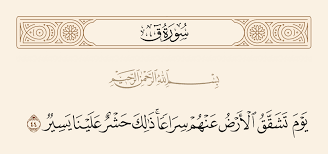 سُورَةُ قٓ
بِسْمِ اللَّهِ الرَّحْمَٰنِ الرَّحِيمِ
يَوْمَ تَشَقَّقُ ٱلْأَرْضُ عَنْهُمْ سِرَاعًاۚ ذَٰلِكَ حَشْرٌ عَلَيْنَا يَسِيرٌ ٤٤